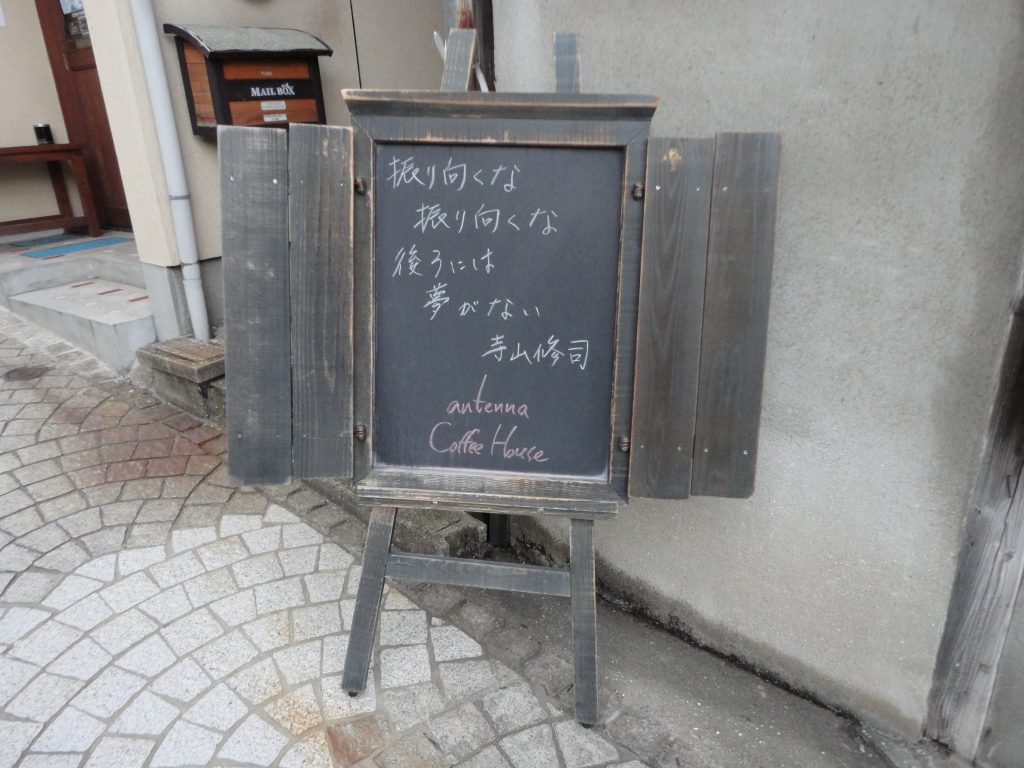 MAIL BOX
振り向くな
振り向くな
後ろには
夢がない
寺山修司
antenna
Coffee House